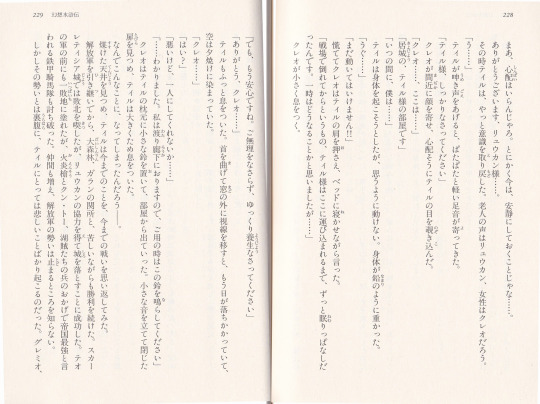 228
「まあ、心配はいらんじゃろ。とにかく今は、安静にしておくことじゃな……」
「ありがとうございます、リュウカン様……」
その時ティルは、やっと意識を取り戻した。老人の声はリュウカン、女性はクレオだろう。
「う……」
ティルが呻き声をあげると、ぱたぱたと軽い足音が寄ってきた。
「ティル様、しっかりなさってください」
クレオが間近に顔を寄せ、心配そうにティルの目を覗き込んだ。
「クレオ……、ここは……」
「居城の、ティル様の部屋です」
「いつの間に、僕は……」
ティルは身体を起こそうとしたが、思うように動けない。身体が鉛のように重かった。
「う……」
「まだ動いてはいけません!!」
慌ててクレオはティルの肩を押さえ、ベッドに寝かせながら言った。
「戦場で倒れてからというもの、ティル様はここに運び込まれるまで、ずっと眠りっぱなしだ
ったんです。一時はどうなることかと思いましたが……」
クレオが小さく息をつく。
229 幻想水滸伝
「でも、もう安心ですね。ご無理をなさらず、ゆっくり養生なさってください」
「ありがとう、クレオ……」
ティルもふっと息をついた。首を曲げて窓の外に視線を移すと、もう日が落ちかかっていて、
空は夕焼けに染まっていた。
「クレオ……」
「はい?」
「悪いけど、一人にしてくれないか……」
「……わかりました。私は廊下におりますので、ご用の時はこの鈴を鳴らしてください」
クレオはティルの枕元に小さな鈴を置いて、部屋から出ていった。小さな音を立てて閉じた
扉を見つめ、ティルは大きくため息をついた。
なんでこんなことに、なってしまったんだろう――。
焼けた天井を見つめ、ティルは今までのことを、今までの戦いを思い返していた。
解放軍を引き継いでから、大森林、ガランの関所と、苦しいながらも勝利を続けた。スカー
レティシア城では敗北を喫したが、リュウカンの協力を得て城を落とすことに成功した。テオ
の軍の前にも一敗地に塗れたが、火炎槍とクン・トー、湖賊たちの兵のおかげで帝国最強と言
われる鉄甲騎馬隊も討ち破った。仲間も増え、解放軍の勢いは止まるところを知らない。
しかしその勢いとは裏腹に、ティルにとっては悲しいことばかり起こるのだった。グレミオ、